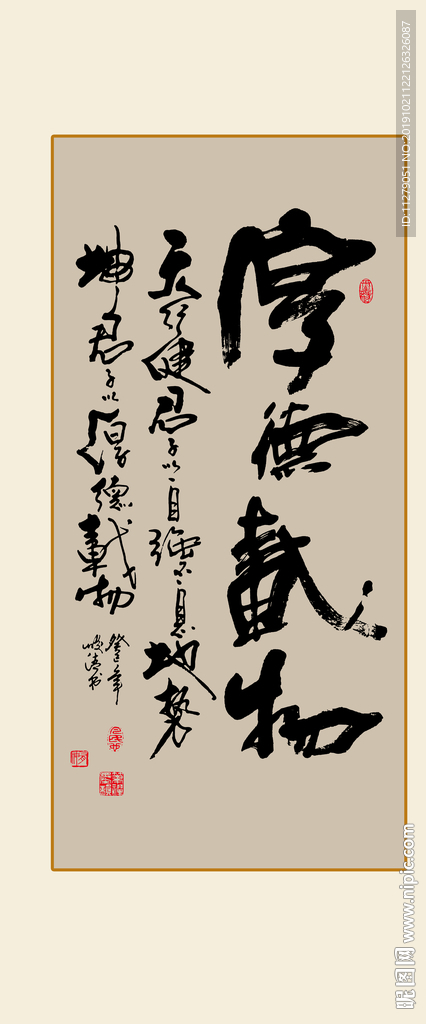 厚德載物
天行健君子以自強不息地勢
坤君子以厚德載物
ID:11279051 NO:20191021122126326087
昵图网 www.nipic.com